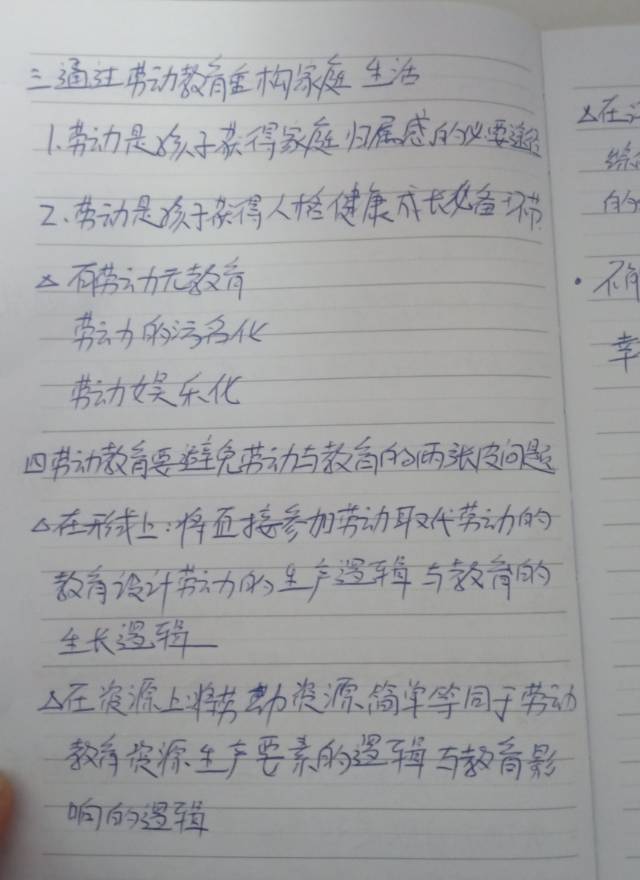 三 通过劳动教育重构家庭 生活
1. 劳动是孩子获得家庭归属感的必要途径
2. 劳动是孩子获得人格健康成长必备环节
△ 有劳动无教育
劳动的污名化
劳动娱乐化
四 劳动教育要避免劳动与教育的两张皮问题
△在形式上:将直接参加劳动取代劳动的
教育设计劳动的生产逻辑与教育的
生长逻辑
△在资源上:将劳动资源简单等同于劳动
教育资源 生产要素的逻辑与教育影
响的逻辑
△在
的
·
幸